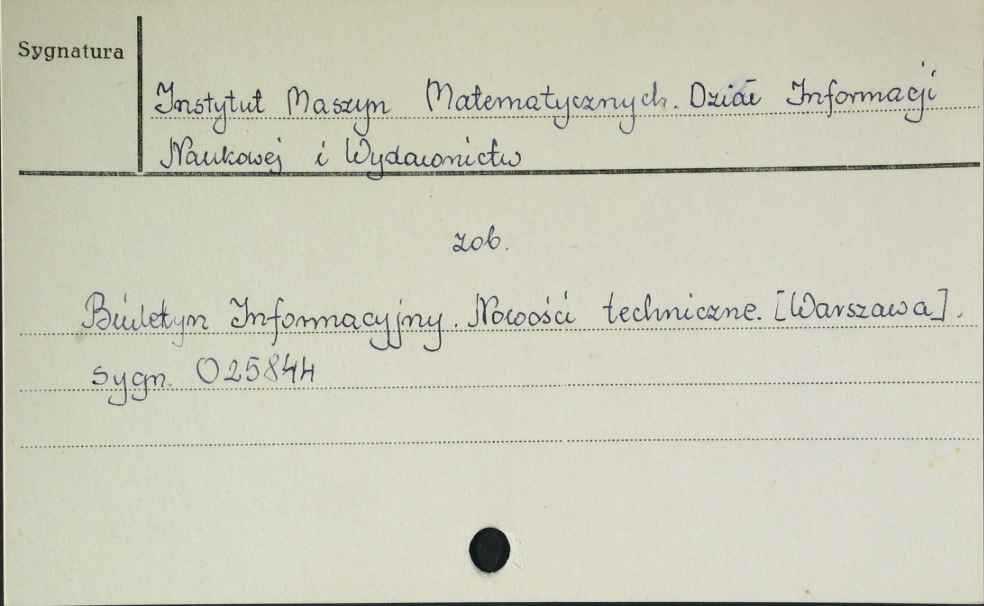 Sygnatura
Instytut Maszyn Matematycznych. Dział Informacji
Naukowej i Wydawnictw
zob.
Biuletyn Informacyjny. Nowości techniczne. [Warszawa].
sygn. 025844